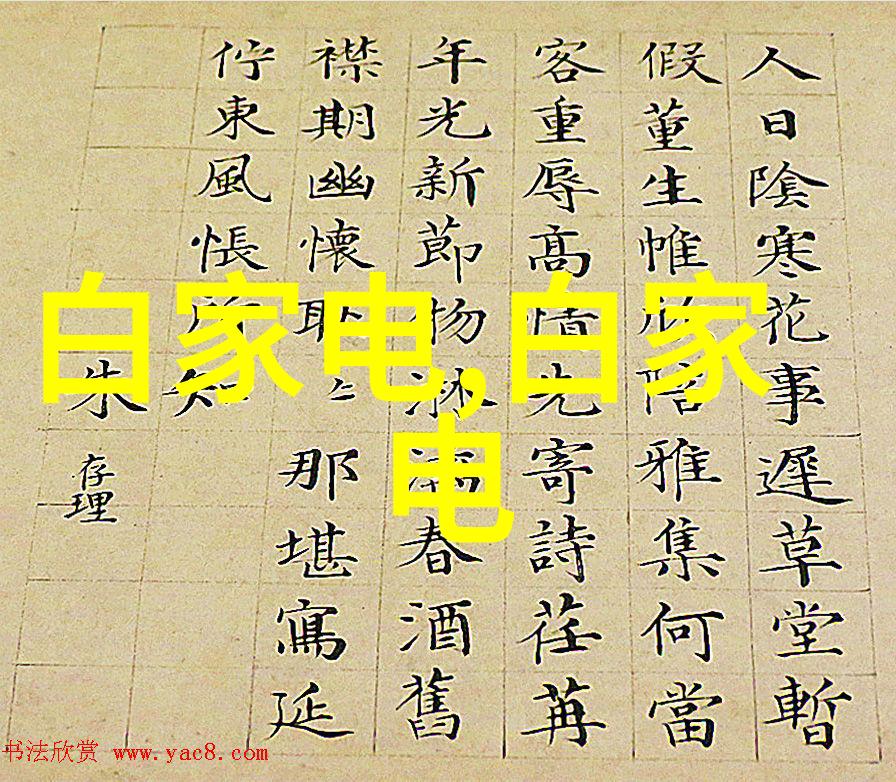 人日陰寒花事遲草堂暫
假董生帷陪雅集何當
客重辱高情先寄詩荏苒
年光新節物淋漓春酒舊
襟期幽懷耿〻那堪寫延
佇東風悵所知
朱存理
白家电,白家
电
书法欣赏 www.yac8.com